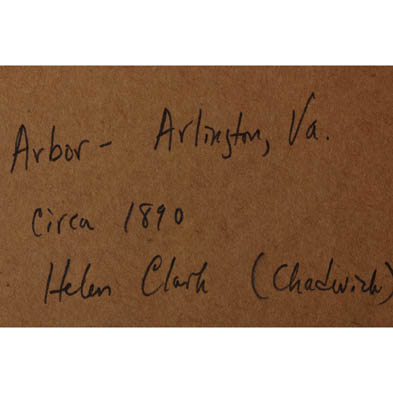 Arbor - Arlington, Va.
circa 1890
Helen Clark (Chadwick)